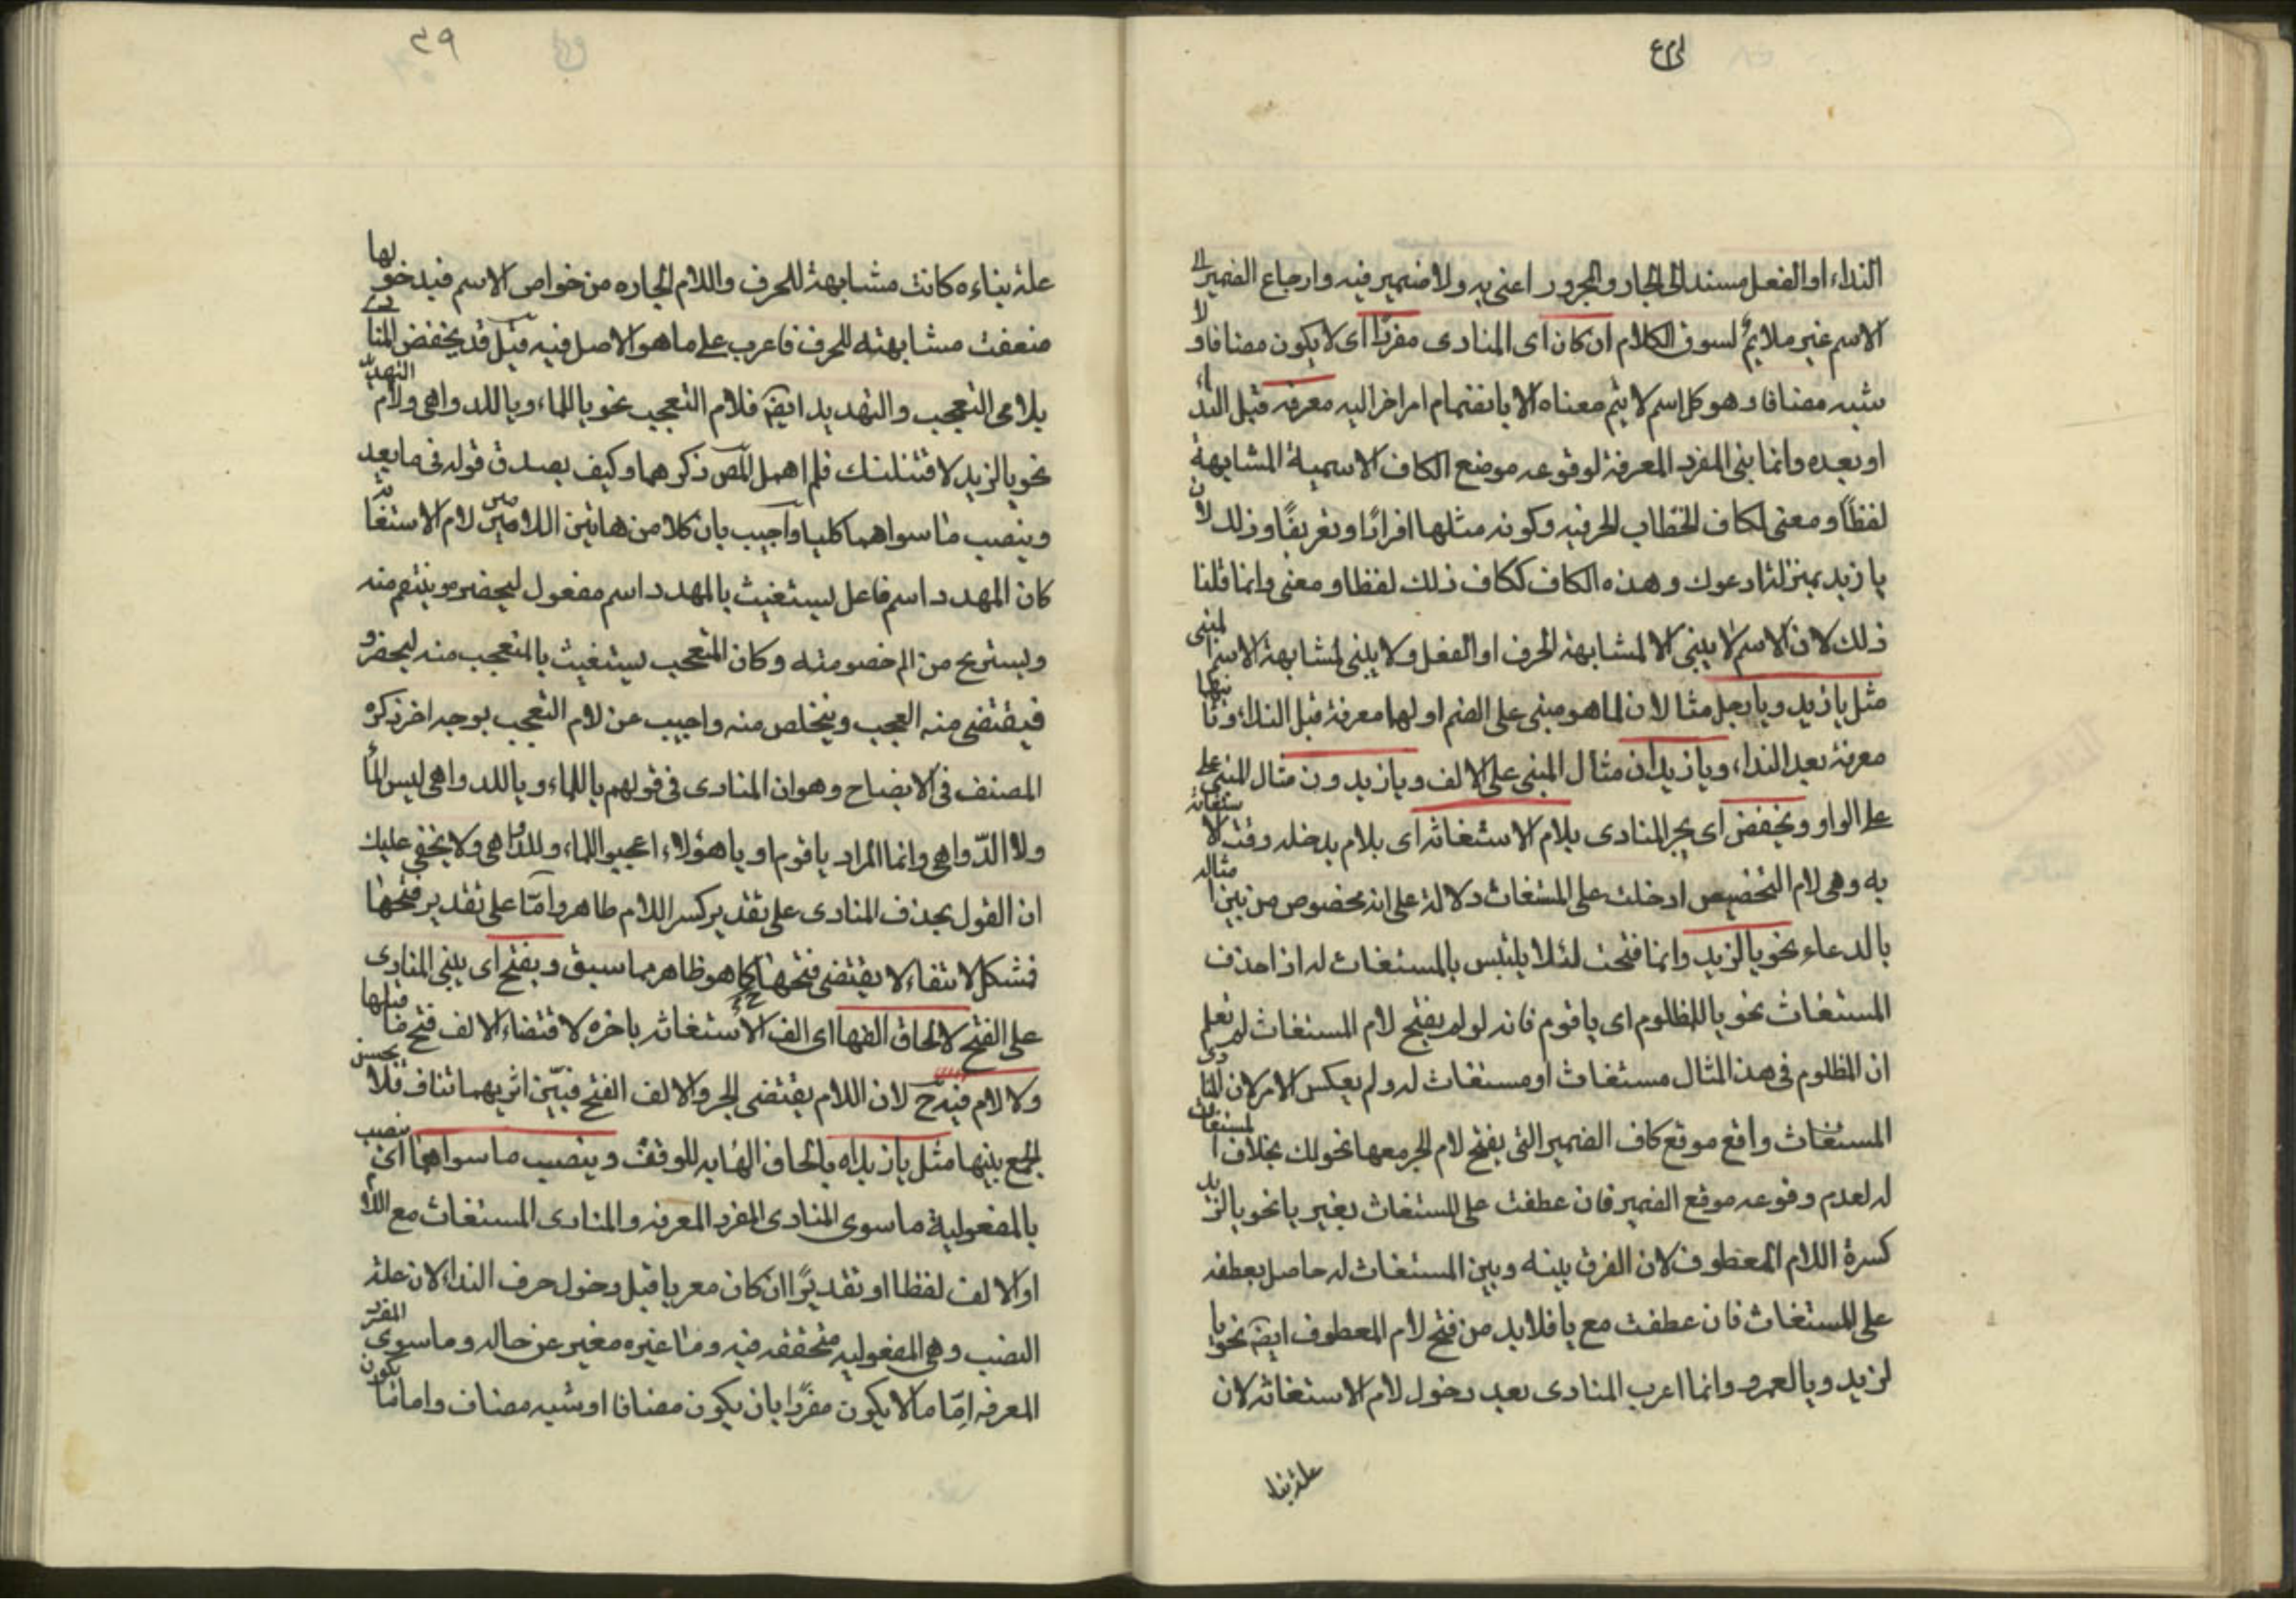 النداء او الفعل مسند الى الجار والمجرور اعنى به ولا ضمير فيه وارجاع الضمير الى
الاسم غير ملايم لسوق الكلام ان كان اى المنادى مفردًا اى لا يكون مضافا ولا
شبه مضافا وهو كل اسم لا يتم معناه الا بانضمام امر اخر اليه معرفه قبل النداء
او بعده وانما بنى المفرد المعرفة لوقوعه موضع الكاف الاسمية المشابهة
لفظًا ومعنى لكاف الخطاب الحرفيه وكونه مثلها افرادًا وتعريفًا وذلك لان
يا زيد بمنزلة ادعوك وهذه الكاف ككاف ذلك لفظا ومعنى وانما قلنا
ذلك لان الاسم لا يبنى الا لمشابهة الحرف او الفعل ولا يبنى لمشابهة الاسم المبنى
مثل يا زيد ويا رجل مثالان لما هو مبنى على الضم اولهما معرفة قبل النداء وثانيهما
معرفة بعد النداء ويا زيدان مثال المبنى على الالف ويا زيدون مثال المبنى على
على الواو ويخفض اى يجر المنادى بلام الاستغاثه اى بلام يدخله وقت الاستغاثة
به وهى لام التخصيص ادخلت على المستغاث دلالة على انه مخصوص من بين امثاله
بالدعاء نحو يا لزيد وانما فتحت لئلا يلتبس بالمستغاث له اذا حذف
المستغاث نحو يا للمظلوم اى يا قوم فانه لو لم يفتح لام المستغاث لم يعلم
ان المظلوم فى هذا المثال مستغاث او مستغاث له ولم يعكس الامر لان المنادى
المستغاث واقع موقع كاف الضمير التى يفتح لام الجر معها نحو لك بخلاف المستغاث
له لعدم وقوعه موقع الضمير فان عطفت على المستغاث بغير يا نحو يا لزيد
كسرة اللام المعطوف لان الفرق بينه وبين المستغاث له حاصل بعطفه
على المستغاث فان عطفت مع يا فلا بد من فتح لام المعطوف ايضا نحو يا
لزيد ويا لعمرو وانما اعرب المنادى بعد دخول لام الاستغاثه لان
علة بناء
٣٩
علة بناءه كانت مشابهة للحرف واللام الجاره من خواص الاسم فبدخولها
ضعفت مشابهته للحرف فاعرب على ما هو الاصل فيه قيل قد يخفض المنادى
بلامى التعجب والتهديد ايضا فلام التعجب نحو يا للماء ويا للدواهى ولام التهديد
نحو يا لزيد لاقتلنك فلم اهمل المص ذكرهما وكيف يصدق قوله فى ما بعد
وينصب ما سواهما كليا واجيب بان كلا من هاتين اللامين لام الاستغاثة
كان المهدد اسم فاعل يستغيث بالمهدد اسم مفعول ليحضر وينتقم منه
ويستريح من الم خصومته وكان المتعجب يستغيث بالمتعجب منه ليحضر
فيقتضى منه العجب ويتخلص منه واجيب عن لام التعجب بوجه اخر ذكره
المصنف فى الايضاح وهو ان المنادى فى قولهم يا للماء ويا للدواهى ليس الماء
ولا الدّواهى وانما المراد يا قوم او يا هؤلاء اعجبوا للماء وللدواهى ولا يخفى عليك
ان القول بحذف المنادى على تقدير كسر اللام ظاهر وامّا على تقدير فتحها
فمشكل لانتفاء لا يقتضى فتحها كما هو ظاهر مما سبق ويفتح اى يبنى المنادى
على الفتح لالحاق الفها اى الف الاستغاثه باخره لاقتضاء الالف فتح ما قبلها
ولا لام فيه ح لان اللام يقتضى الجر والالف الفتح فبيّن اثريهما تناف فلا يحسن
الجمع بينهما مثل يا زيداه بالحاق الهاء به للوقف وينصب ما سواهما اى ينصب
بالمفعولية ما سوى المنادى المفرد المعرفه والمنادى المستغاث مع اللام
او الالف لفظا او تقديرًا ان كان معربا قبل دخول حرف النداء لان علة
النصب وهى المفعوليه متحققه فيه وما غيره مغير عن حاله وما سوى المفرد
المعرفه امّا ما لا يكون مفردًا بان يكون مضافا او شبه مضاف واما ما يكون